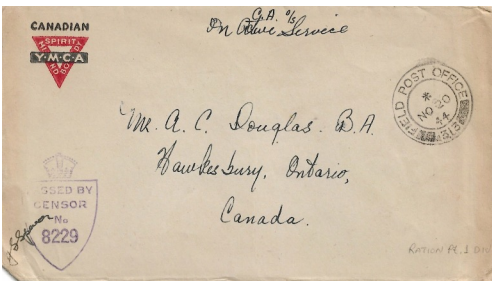 CANADIAN
SPIRIT
MIND BODY
Y·M·C·A
C.A. o/s
On Active Service
FIELD POST OFFICE
*
NO 20
44
Mr. A. C. Douglas. B.A.
Hawkesbury, Ontario,
Canada.
PASSED BY
CENSOR
No
8229
RATION PT. 1